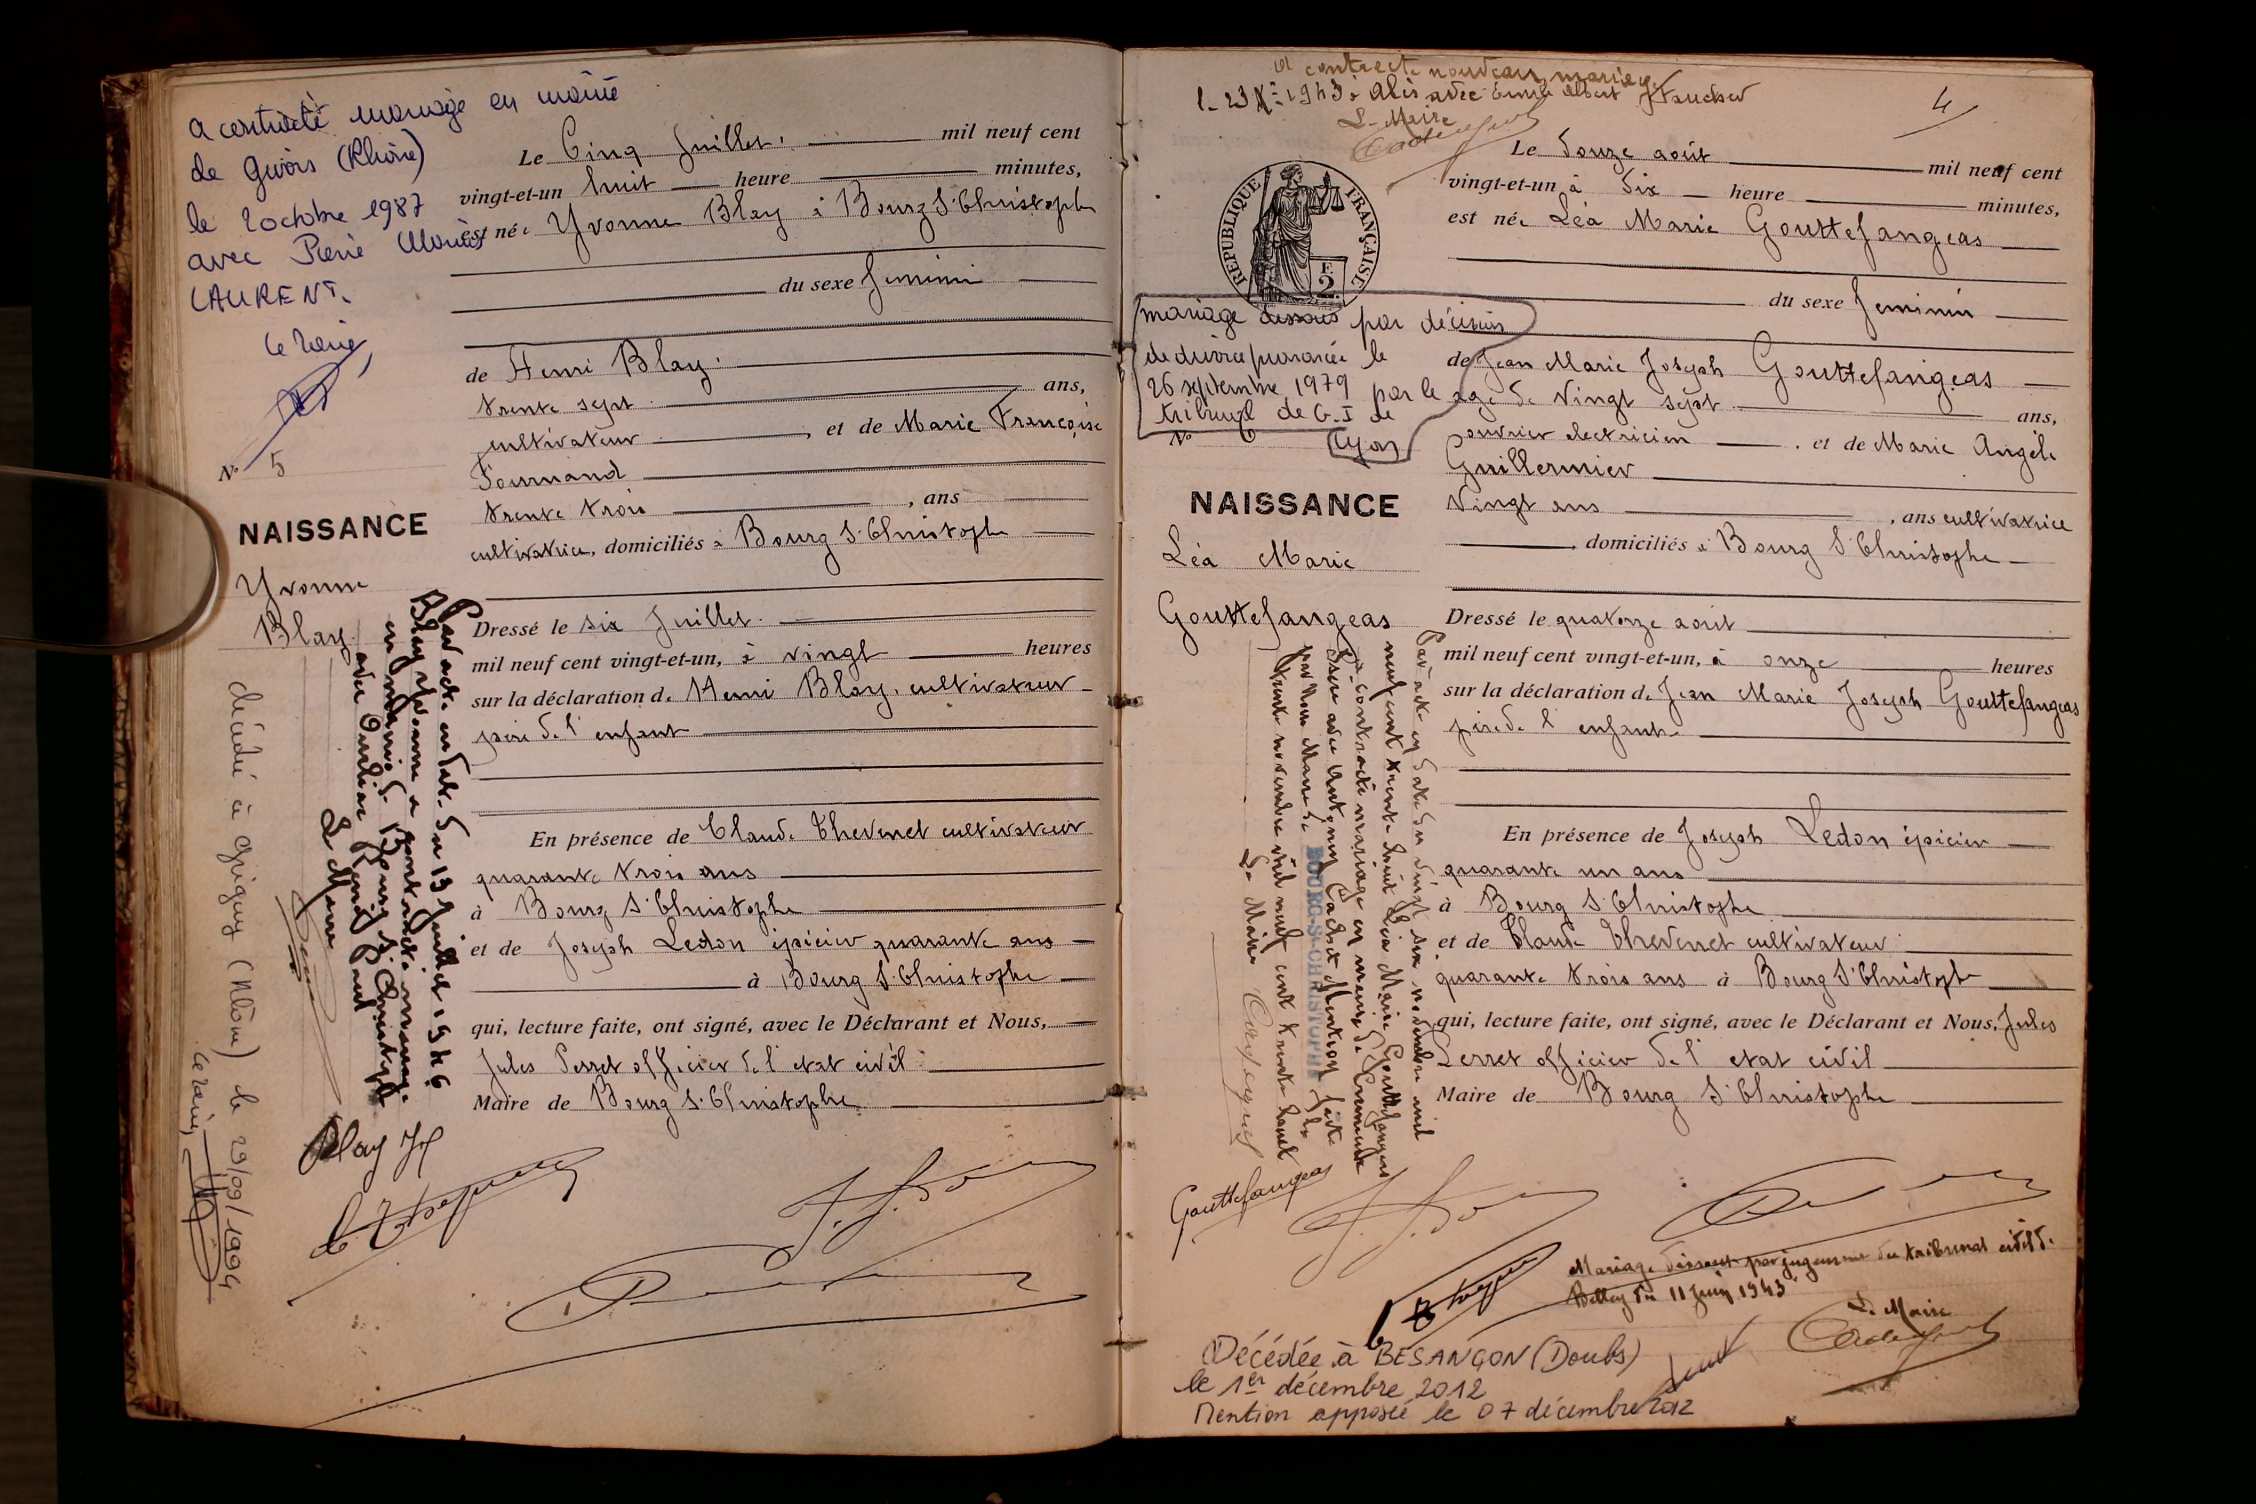 a contracté mariage en mairie
de Givors (Rhône)
le 2 octobre 1987
avec Pierre
LAURENT.
le Maire,
N° 5
NAISSANCE
Yvonne
Blay.
Le Cinq Juillet. mil neuf cent
vingt-et-un huit heure minutes,
est née Yvonne Blay à Bourg St Christophe
du sexe feminin
de Henri Blay.
trente sept ans,
cultivateur, et de Marie Françoise
Fournand
trente trois, ans
cultivatrice, domiciliés à Bourg St Christophe
Dressé le six Juillet.
mil neuf cent vingt-et-un, à vingt heures
sur la déclaration de Henri Blay, cultivateur
père de l'enfant
En présence de Claude Thevenet cultivateur
quarante trois ans
à Bourg St Christophe
et de Joseph Ledon épicier quarante ans
à Bourg St Christophe
qui, lecture faite, ont signé, avec le Déclarant et Nous,
Jules Perret officier de l'etat civil
Maire de Bourg St Christophe
Par acte en date du 13 Juillet 1946
Blay Yvonne a contracté mariage
en mairie de Bourg St Christophe
avec Rémy Paul
Le Maire
décédé à Grigny (Rhône) le 29/09/1994
le Maire,
Blay
a contracté nouveau mariage
le 23 X 1943 à avec Emile Albert
Le Maire
4
RÉPUBLIQUE FRANÇAISE
F
2
mariage dissous par décision
de divorce prononcée le
26 septembre 1979 par le
tribunal de G.I de
Lyon
N° 6
NAISSANCE
Léa Marie
Gouttefangeas
Le Douze août mil neuf cent
vingt-et-un à six heure minutes,
est née Léa Marie Gouttefangeas
du sexe feminin
de Jean Marie Joseph Gouttefangeas
agé de vingt sept ans,
ouvrier electricien, et de Marie Angèle
Guillermier
vingt ans, ans cultivatrice
, domiciliés à Bourg St Christophe
Dressé le quatorze août
mil neuf cent vingt-et-un, à onze heures
sur la déclaration de Jean Marie Joseph Gouttefangeas
père de l'enfant
En présence de Joseph Ledon épicier
quarante un ans
à Bourg St Christophe
et de Claude Thevenet cultivateur
quarante trois ans à Bourg St Christophe
qui, lecture faite, ont signé, avec le Déclarant et Nous, Jules
Perret officier de l'etat civil
Maire de Bourg St Christophe
Par acte en date du vingt six novembre mil
neuf cent trente huit Léa Marie Gouttefangeas
a contracté mariage en mairie de
avec Antonin Mention faite
par Nous Maire de BOURG-St-CHRISTOPHE le
trente novembre mil neuf cent trente huit
Le Maire
Gouttefangeas
Mariage dissout par jugement du tribunal civil de
Belley du 11 Juin 1943
Le Maire
Décédée à BESANÇON (Doubs)
le 1er décembre 2012
Mention apposée le 07 décembre 2012